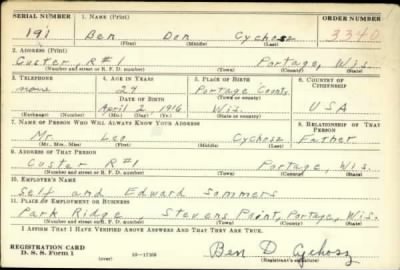 SERIAL NUMBER 1. NAME (Print) ORDER NUMBER
191 Ben Don Cychosz 3340
(First) (Middle) (Last)
2. ADDRESS (Print)
Custer, R#1 Portage, Wis.
(Number and street or R. F. D. number) (Town) (County) (State)
3. TELEPHONE 4. AGE IN YEARS 5. PLACE OF BIRTH 6. COUNTRY OF CITIZENSHIP
none 24 Portage County
DATE OF BIRTH (Town or county)
April 2, 1916 Wis. USA
(Exchange) (Number) (Mo.) (Day) (Yr.) (State or country)
7. NAME OF PERSON WHO WILL ALWAYS KNOW YOUR ADDRESS 8. RELATIONSHIP OF THAT PERSON
Mr. Leo Cychosz Father
(Mr., Mrs., Miss) (First) (Middle) (Last)
9. ADDRESS OF THAT PERSON
Custer R#1 Portage, Wis.
(Number and street or R. F. D. number) (Town) (County) (State)
10. EMPLOYER'S NAME
Self and Edward Sommers
11. PLACE OF EMPLOYMENT OR BUSINESS
Park Ridge Stevens Point, Portage, Wis.
(Number and street or R. F. D. number) (Town) (County) (State)
I AFFIRM THAT I HAVE VERIFIED ABOVE ANSWERS AND THAT THEY ARE TRUE.
REGISTRATION CARD
D. S. S. Form 1 (over) Ben D Cychosz
(Registrant's signature)